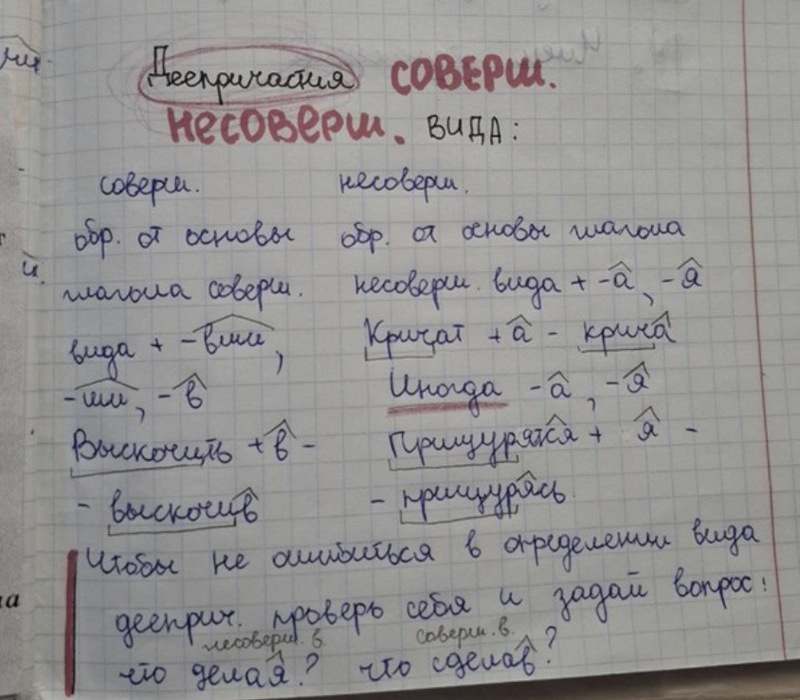 Деепричастия СОВЕРШ.
НЕСОВЕРШ. ВИДА:
соверш. несоверш.
обр. от основы обр. от основы глагола
глагола соверш. несоверш. вида + -а, -я
вида + -вши, Кричат + а - крича
-ши, -в Иногда -а, -я
Выскочить + в - Прищурятся + я -
- выскочив - прищурясь
Чтобы не ошибиться в определении вида
дееприч. проверь себя и задай вопрос:
несоверш. в. соверш. в.
что делая? что сделав?